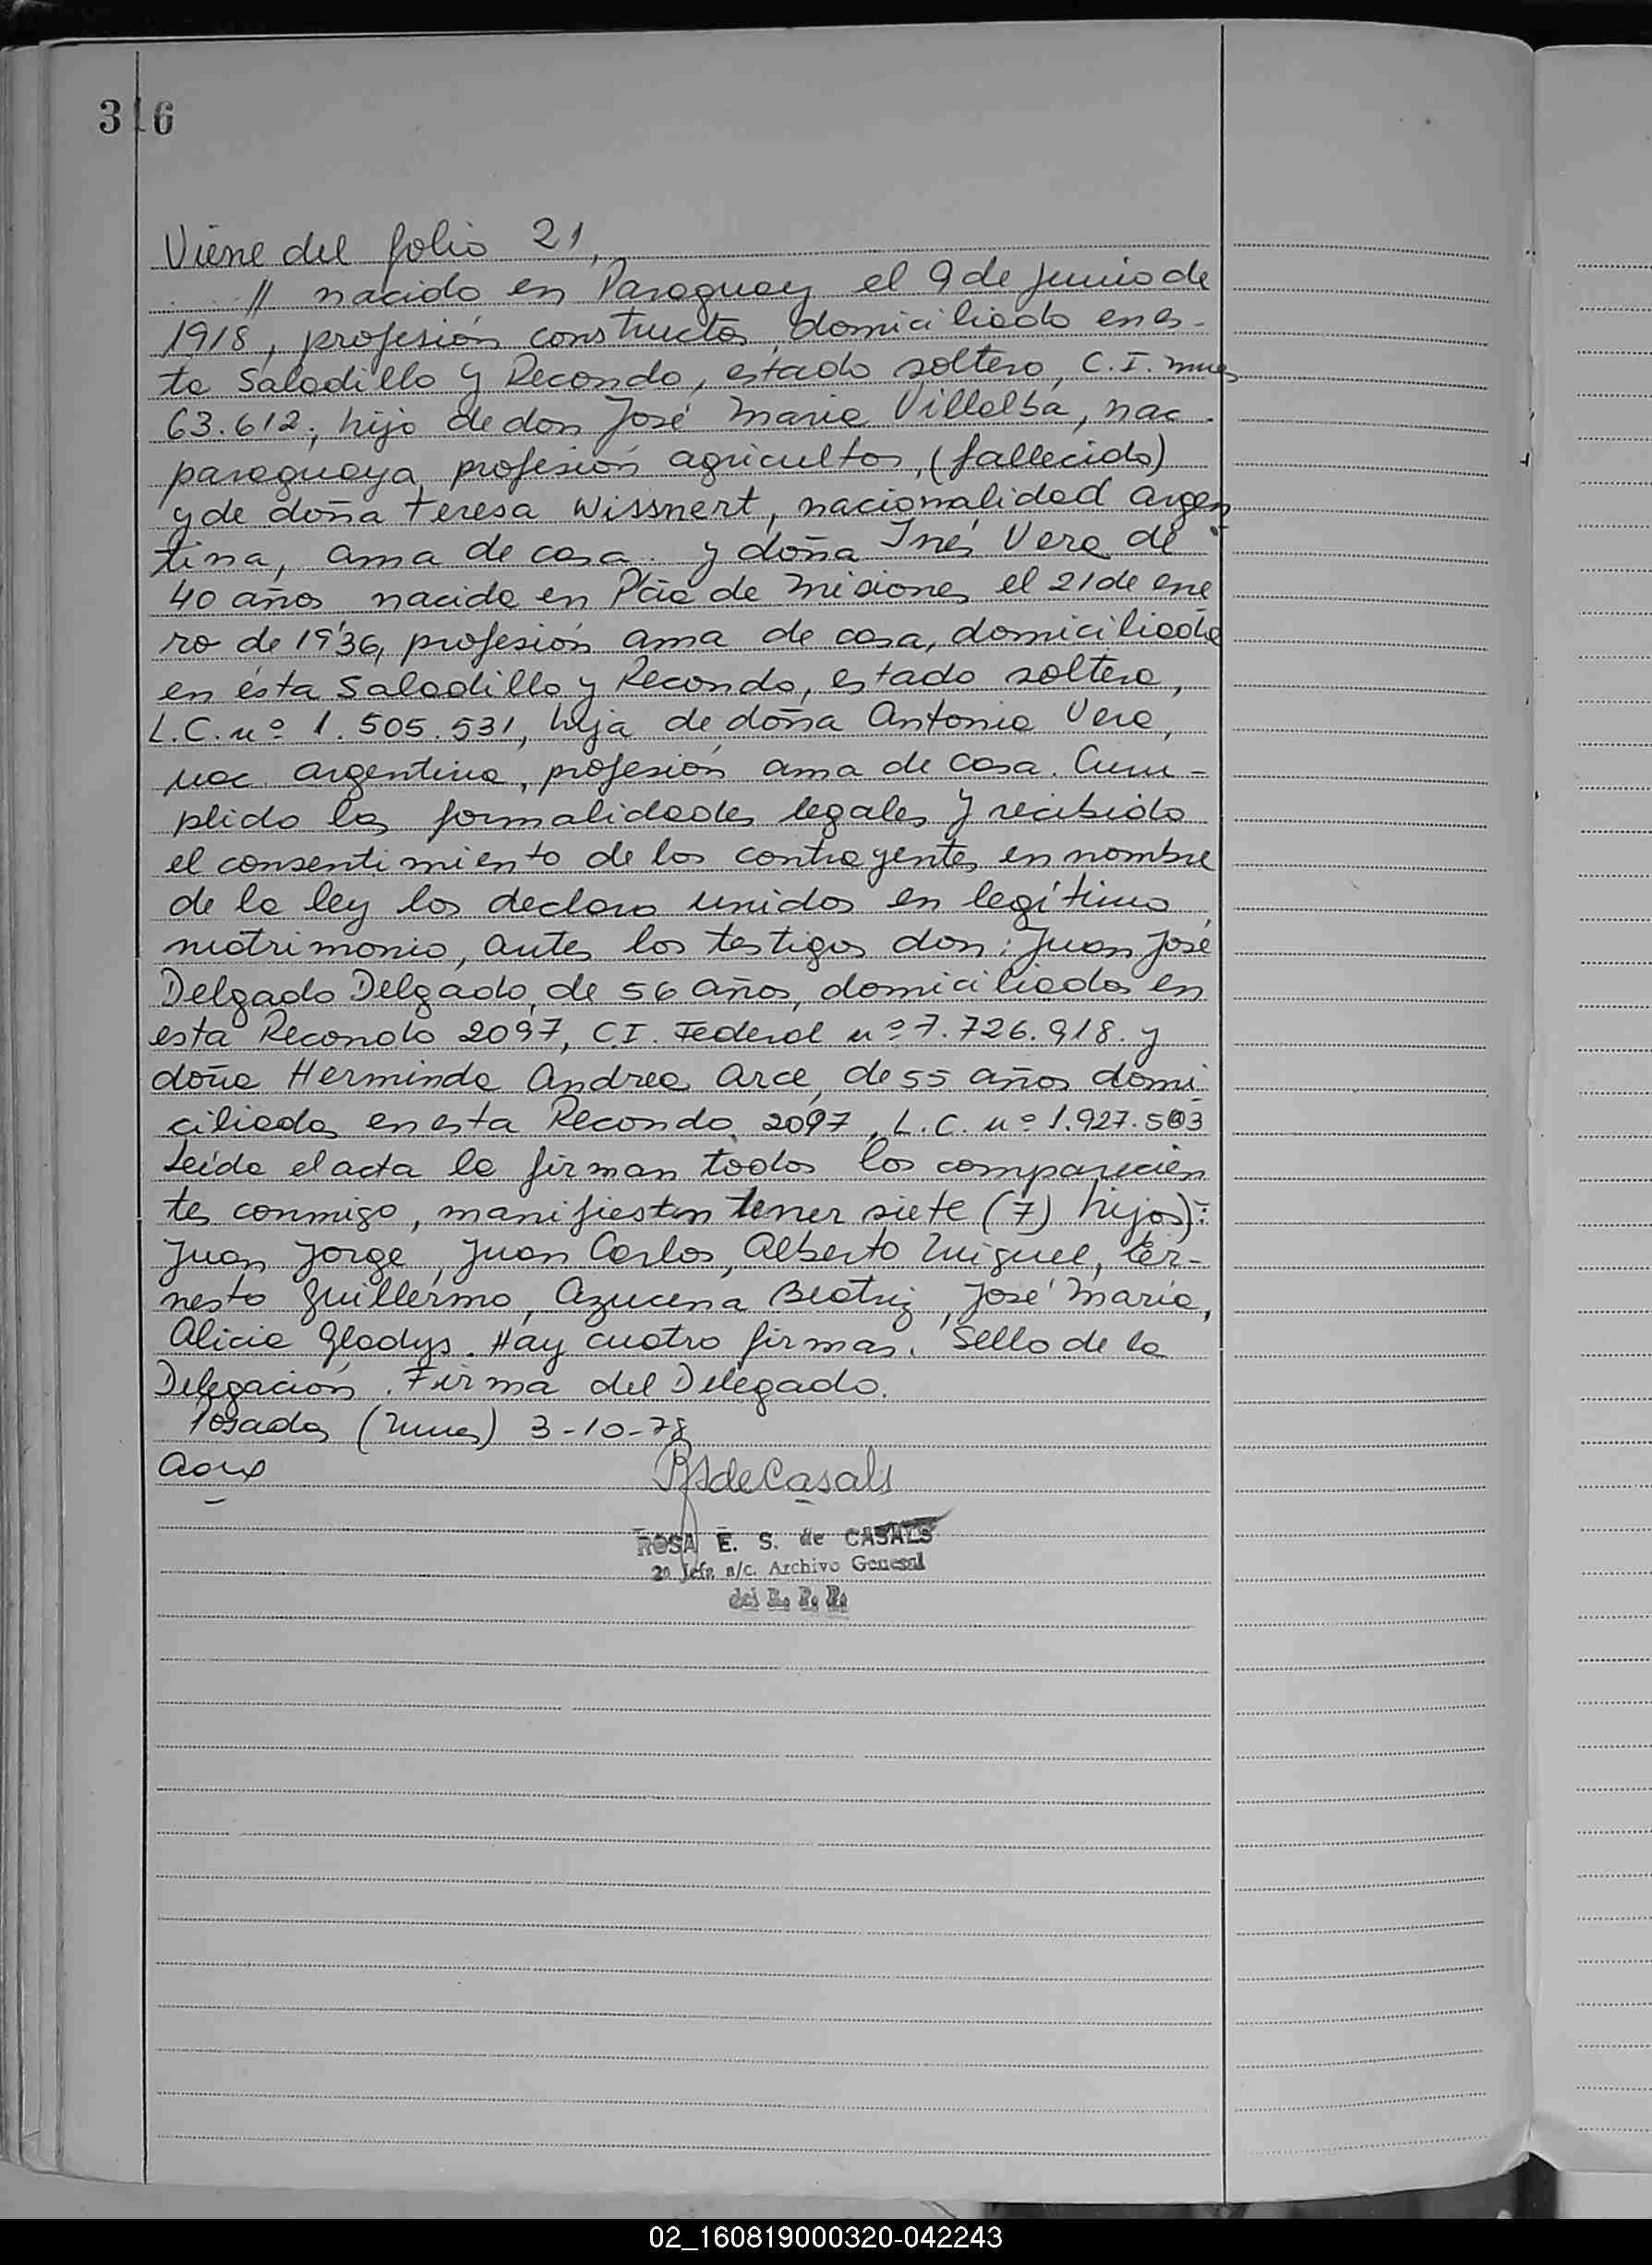 316
Viene del folio 21,
// nacido en Paraguay el 9 de junio de
1918, profesión constructor, domiciliado en es-
ta Saladillo y Recondo, estado soltero, C.I. mnes
63.612, hijo de don José Maria Villalba, nac.
paraguaya, profesión agricultor, (fallecido)
y de doña teresa Wissnert, nacionalidad argen
tina, ama de casa. y doña Inés Vera de
40 años nacida en Pcia de Misiones el 21 de ene
ro de 1936, profesión ama de casa, domiciliada
en ésta Saladillo y Recondo, estado soltera,
L.C. nº 1.505.531, hija de doña Antonia Vera,
nac. argentina, profesión ama de casa. Cum-
plido las formalidades legales y recibido
el consentimiento de los contrayentes en nombre
de la ley los declaro unidos en legítimo
matrimonio, antes los testigos don: Juan José
Delgado Delgado, de 56 años, domiciliados en
esta Recondo 2097, C.I. Federal nº 7.726.918. y
doña Herminda Andrea Arce, de 55 años domi
ciliados en esta Recondo 2097, L.C. nº 1.927.503
Leída el acta la firman todos los comparecien
tes conmigo, manifiestan tener siete (7) hijos):
Juan Jorge, Juan Carlos, Alberto Miguel, Er-
nesto Guillermo, Azucena Beatriz, José María,
Alicia Gladys. Hay cuatro firmas. Sello de la
Delegación. Firma del Delegado.
Posadas (Mnes) 3-10-78
RSdeCasals
ROSA E. S. de CASALS
2a Jefa a/c. Archivo General
del R. P. P.
02_160819000320-042243